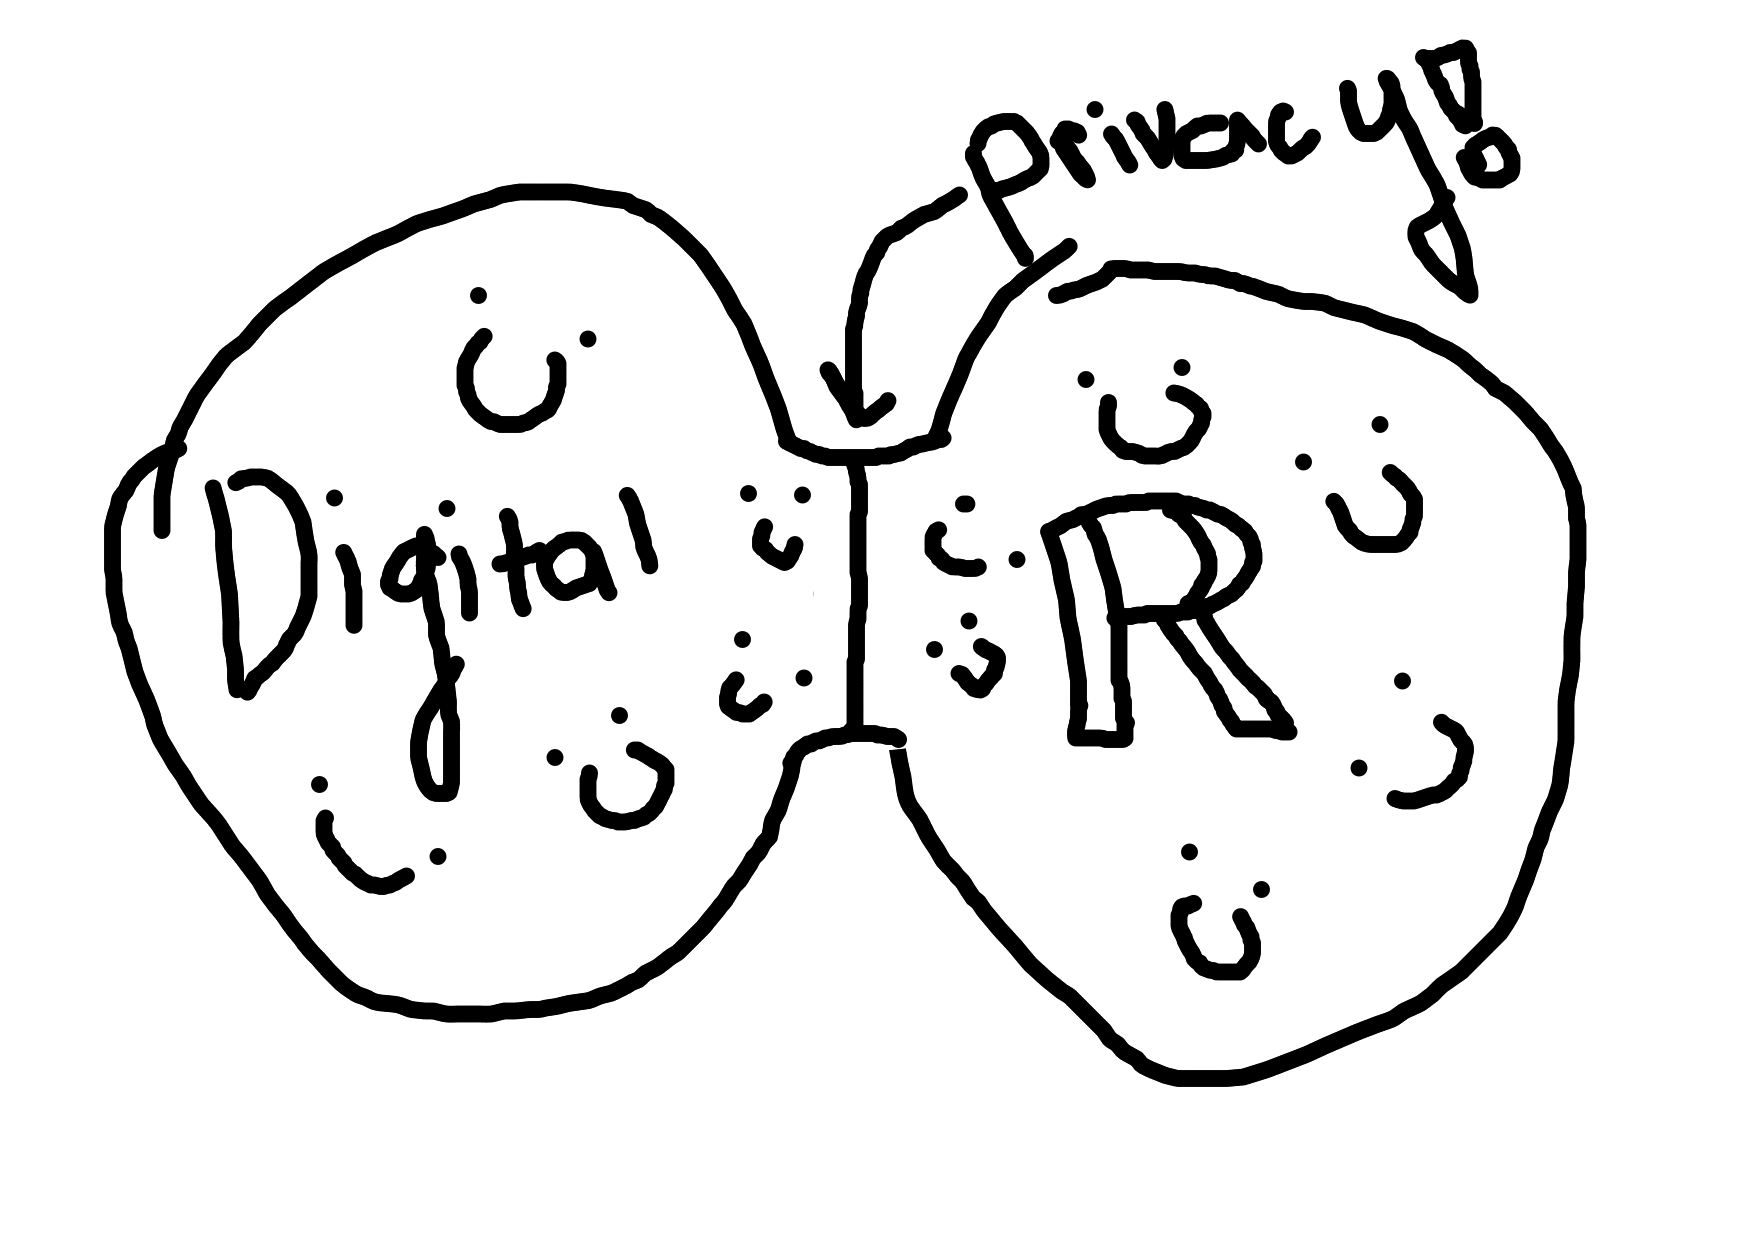 privacy!
Digital
R